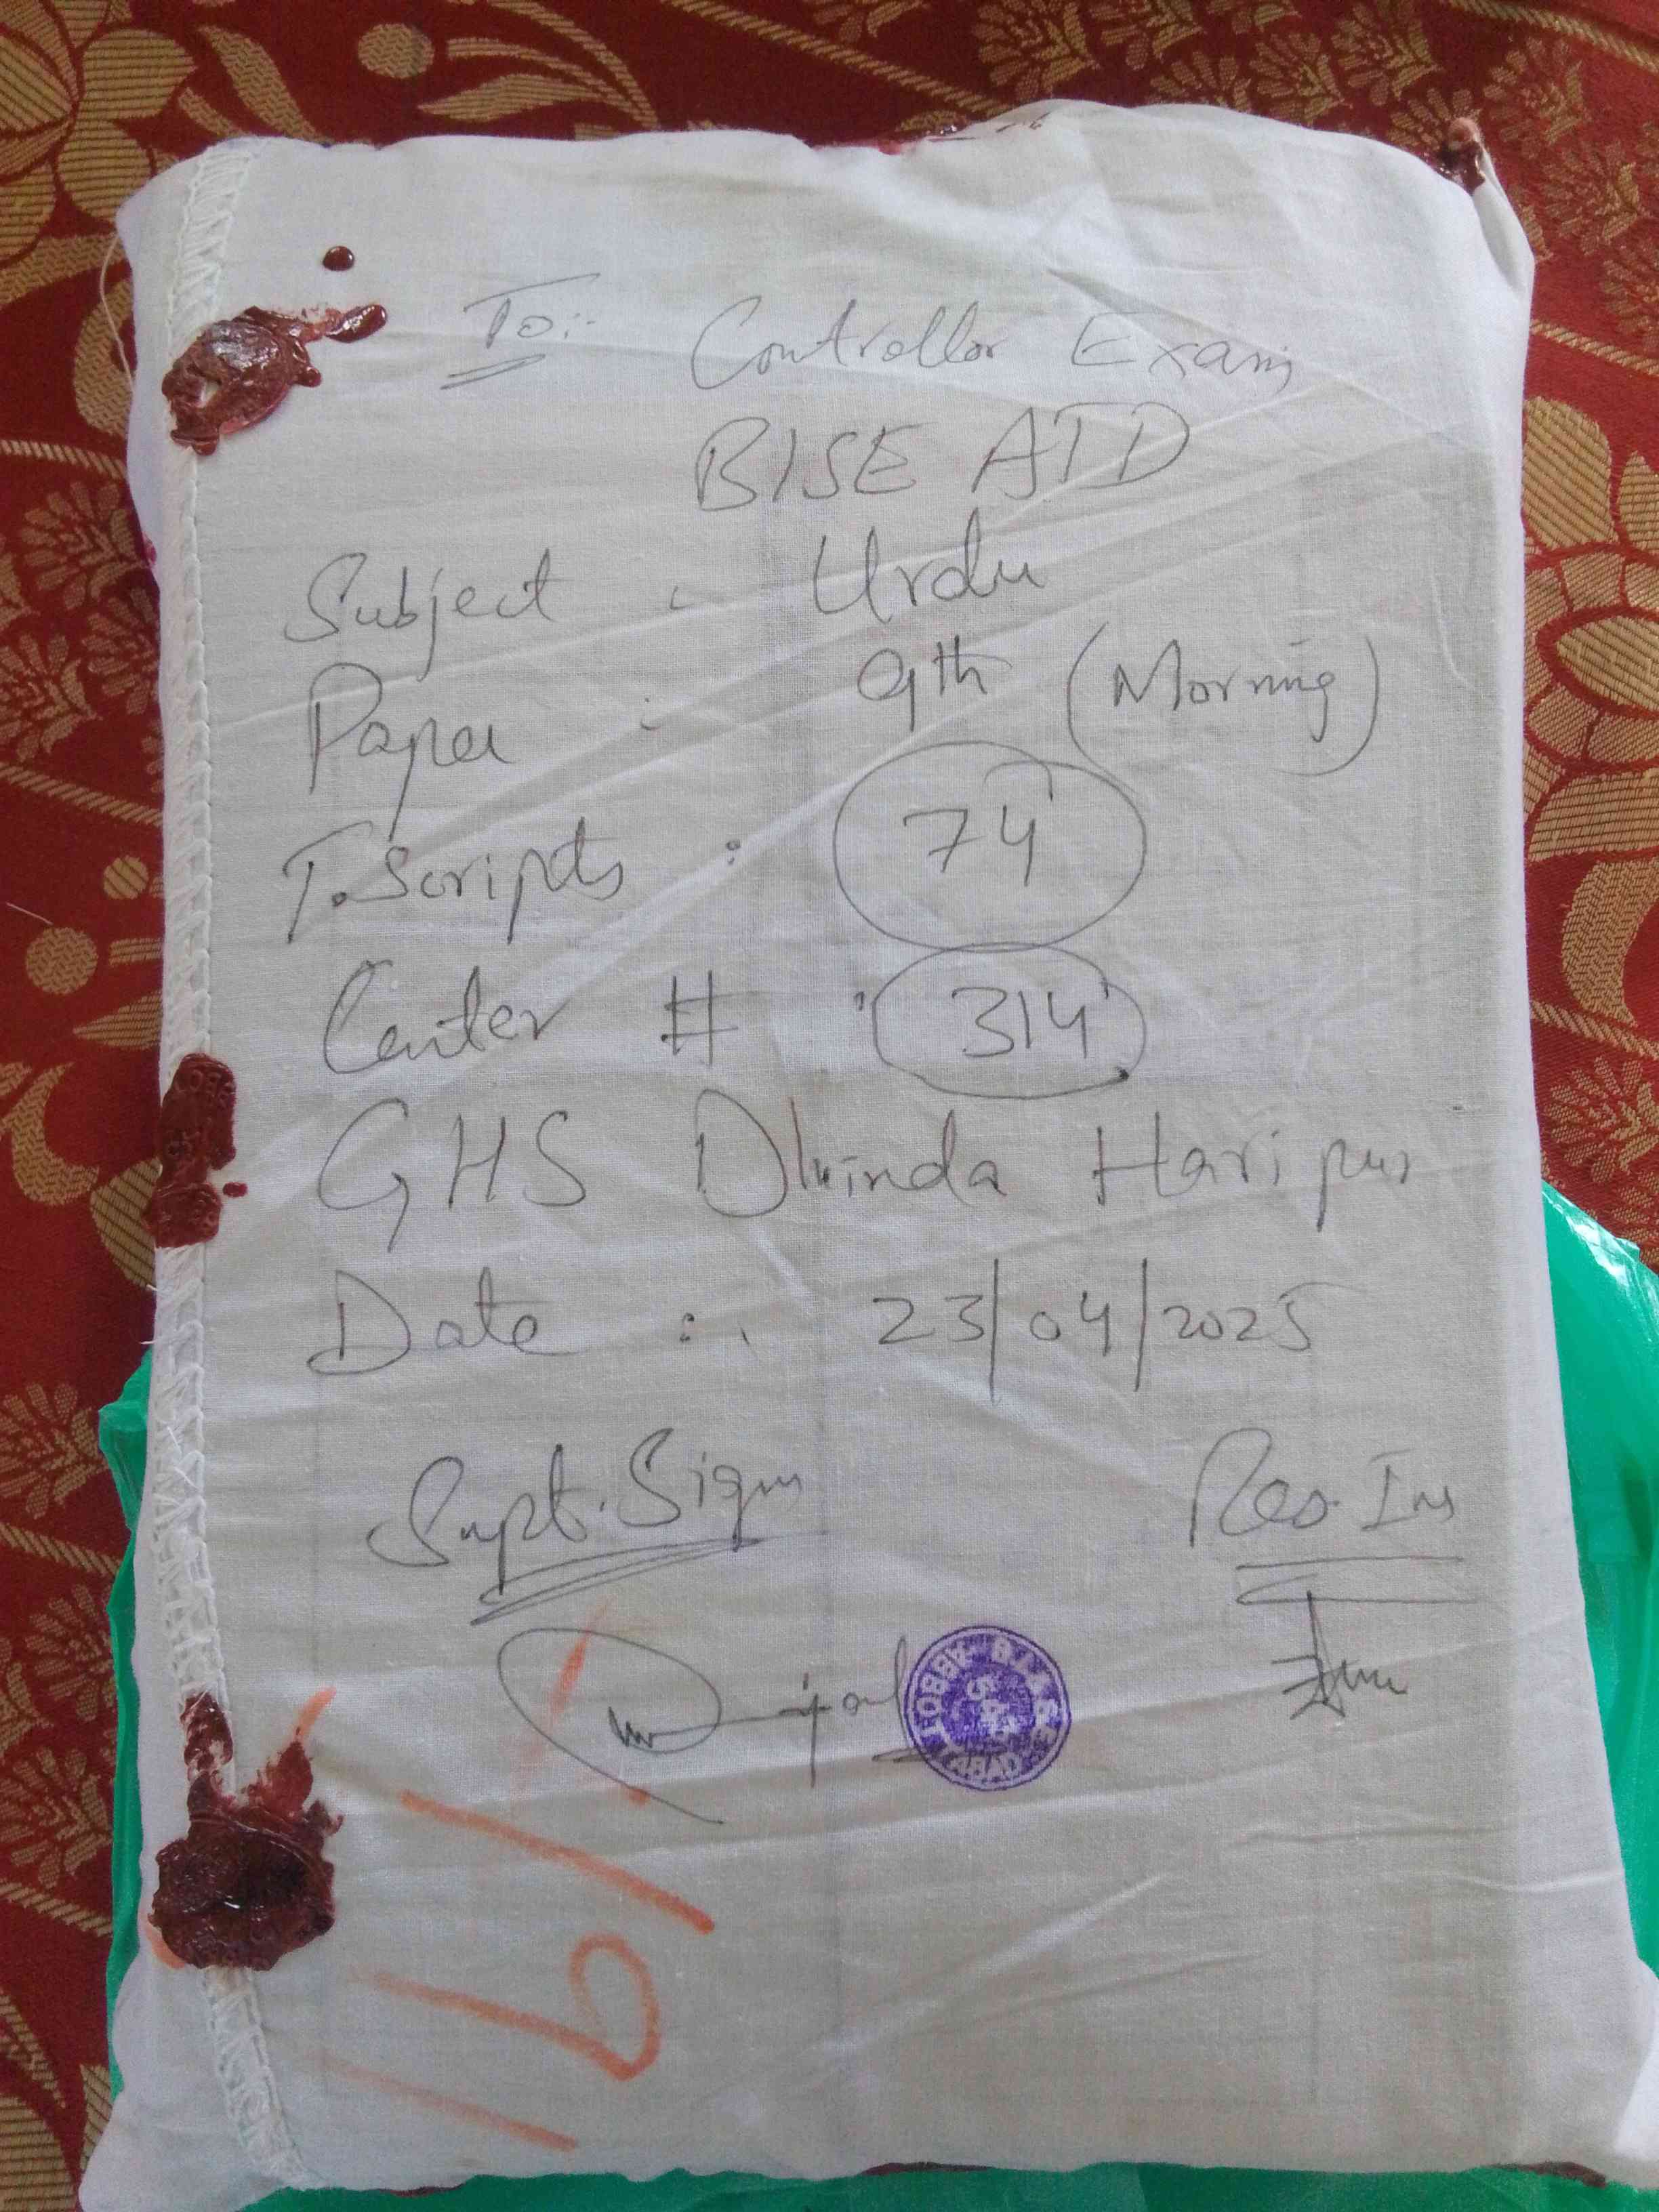 To:- Controllor Exam
BISE ATD
Subject : Urdu
Paper : 9th (Morning)
T.Scripts : 74
Center # : 314
GHS Dhinda Haripur
Date :. 23/04/2025
Supt. Sign Res. Ins